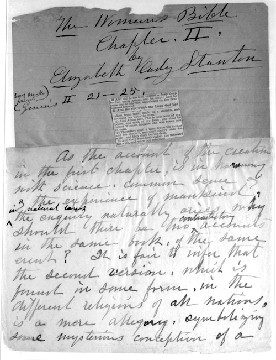 The Woman's Bible
Chapter. II.
by
Elizabeth Cady Stanton
Genesis II 21–25.
As the account of the creation
in the first chapter, is in harmony
with science, common sense, &
the experience of mankind
in natural laws,
the enquiry naturally arises, why
contradictory
should there be two accounts
in the same book, of the same
event? It is fair to infer that
the second version, which is
found in some form, in the
different religions of all nations,
is a mere allegory, symbolizing
some mysterious conception of a